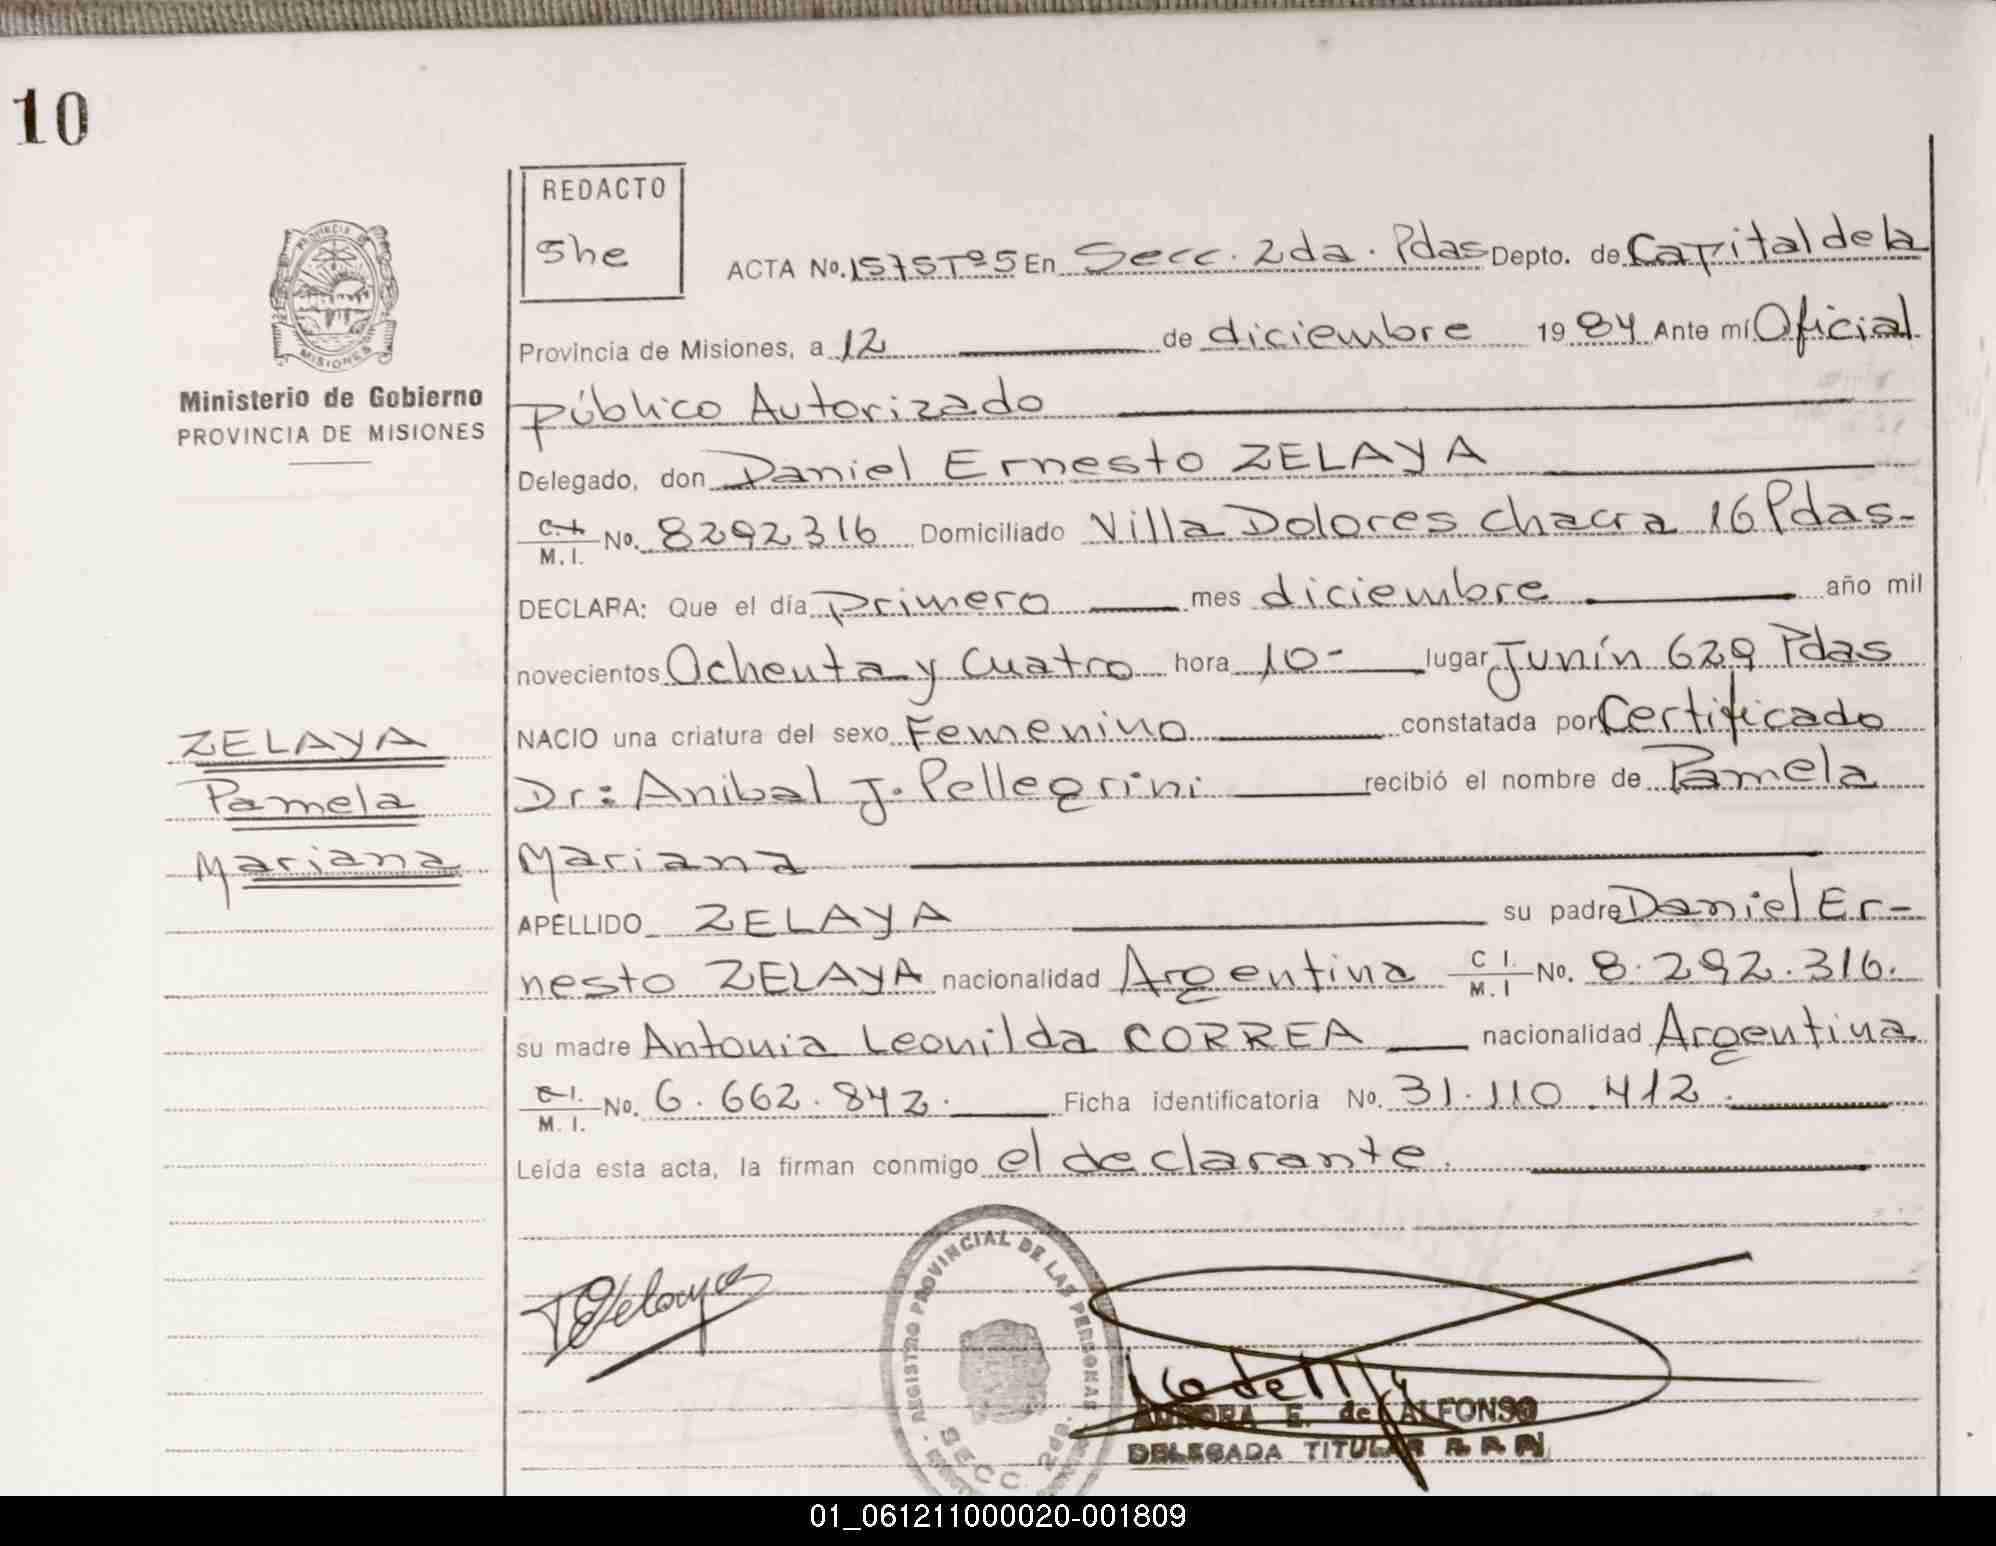 10
REDACTO
She
PROVINCIA DE
MISIONES
Ministerio de Gobierno
PROVINCIA DE MISIONES
ACTA No. 1575 Tº 5 En Secc. 2da. Pdas Depto. de Capital de la
Provincia de Misiones, a 12 de diciembre 1984 Ante mí Oficial
Público Autorizado
Delegado, don Daniel Ernesto ZELAYA
C.I. M.I. No. 8292316 Domiciliado Villa Dolores chacra 16 Pdas-
DECLARA: Que el día Primero mes diciembre año mil
novecientos Ochenta y Cuatro hora 10- lugar Junín 629 Pdas
NACIO una criatura del sexo Femenino constatada por Certificado
Dr: Anibal J. Pellegrini recibió el nombre de Pamela
Mariana
ZELAYA
Pamela
Mariana
APELLIDO ZELAYA su padre Daniel Er-
nesto ZELAYA nacionalidad Argentina C I. M. I No. 8.292.316.
su madre Antonia Leonilda CORREA nacionalidad Argentina
C I. M. I. No. 6.662.842. Ficha identificatoria No. 31.110.412.
Leída esta acta, la firman conmigo el declarante.
REGISTRO PROVINCIAL DE LAS PERSONAS
SECC. 2da.
DZelaya
AURORA E. de ALFONSO
DELEGADA TITULAR R. P. P.
01_061211000020-001809